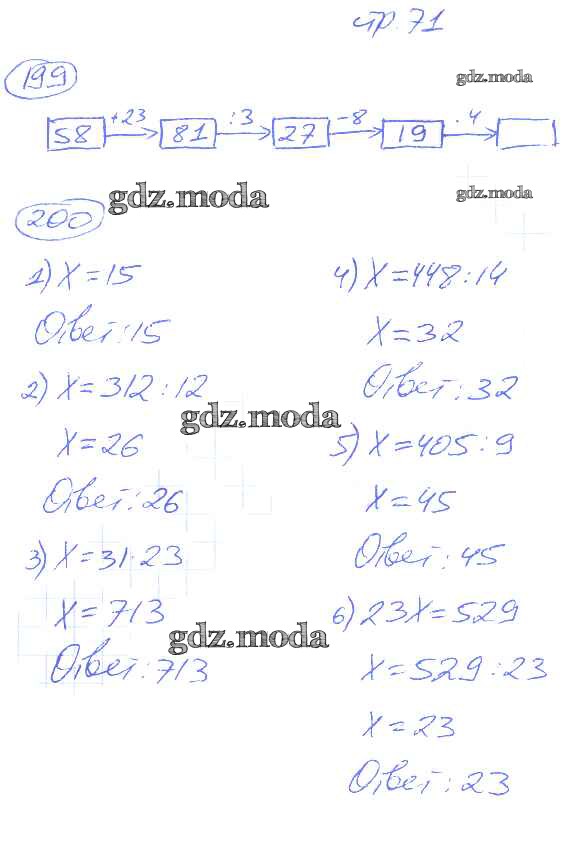 стр. 71
199
gdz.moda
58 +23 81 :3 27 -8 19 ·4
gdz.moda
gdz.moda
200
1) X=15
Ответ: 15
2) X=312:12
gdz.moda
X=26
Ответ: 26
3) X=31·23
X=713
gdz.moda
Ответ: 713
4) X=448:14
X=32
Ответ: 32
5) X=405:9
X=45
Ответ: 45
6) 23X=529
X=529:23
X=23
Ответ: 23